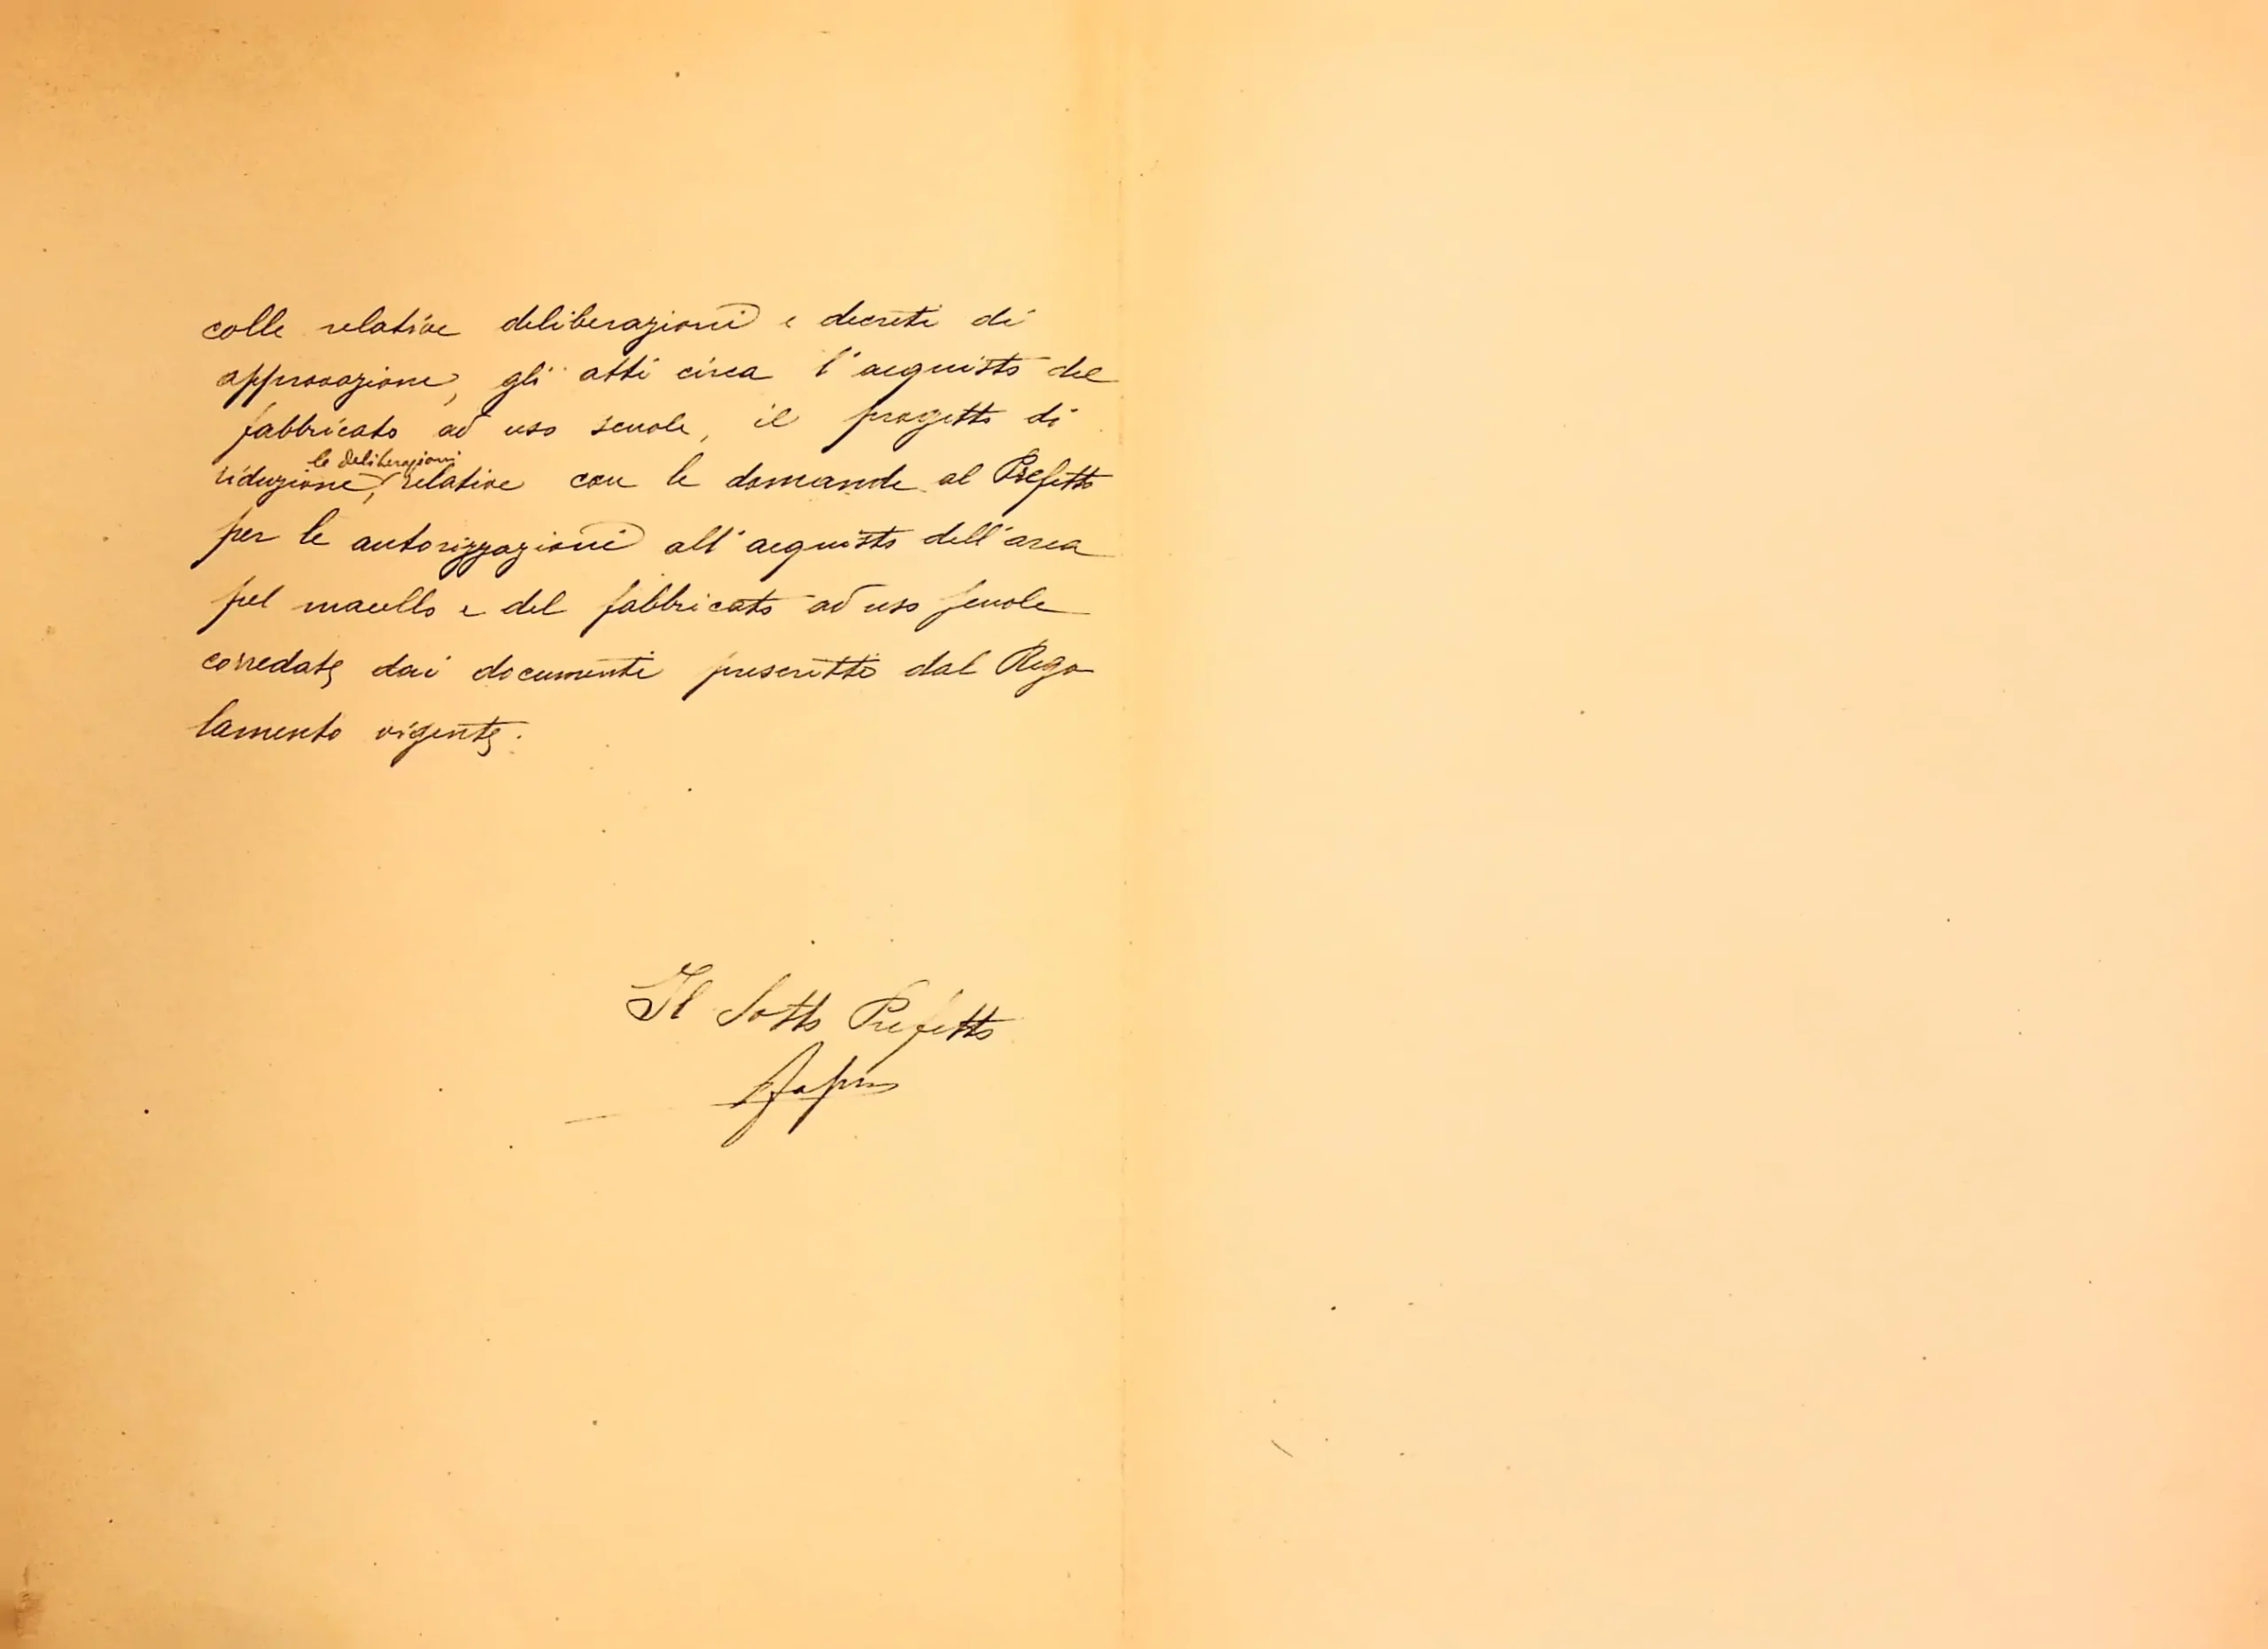 colle relative deliberazioni e decreti di
approvazione, gli atti circa l'acquisto del
fabbricato ad uso scuole, il progetto di
le deliberazioni
riduzione, relative con le domande al Prefetto
per le autorizzazioni all'acquisto dell'area
pel macello e del fabbricato ad uso scuole
corredate dai documenti prescritti dal Rego
lamento vigente.
Il Sotto Prefetto